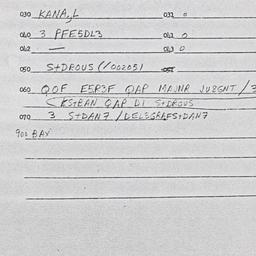 030 KANA,L 031 0
040 3 PFE5DL3 041 0
042 — 043 0
050 S+DROUS (100205) 051
060 QOF E5R3F QAP MAJNR JU8GNT / 3
< KS+BAN QAP DI S+DROUS
070 3 S+DAN7 / DELEGRAFS+DAN7
900 BAX